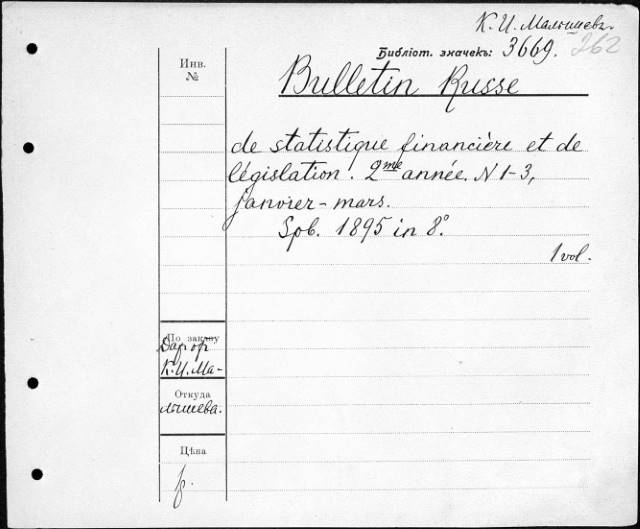 К. И. Малышевъ.
Библіот. значекъ: 3669. 262
Инв.
№
Bulletin Russe
de statistique financière et de
législation. 2me année. N 1-3,
janvier-mars.
Spb. 1895 in 8°
1 vol.
По заказу
Дар от
К. И. Ма-
Откуда
лышева.
Цѣна
р.